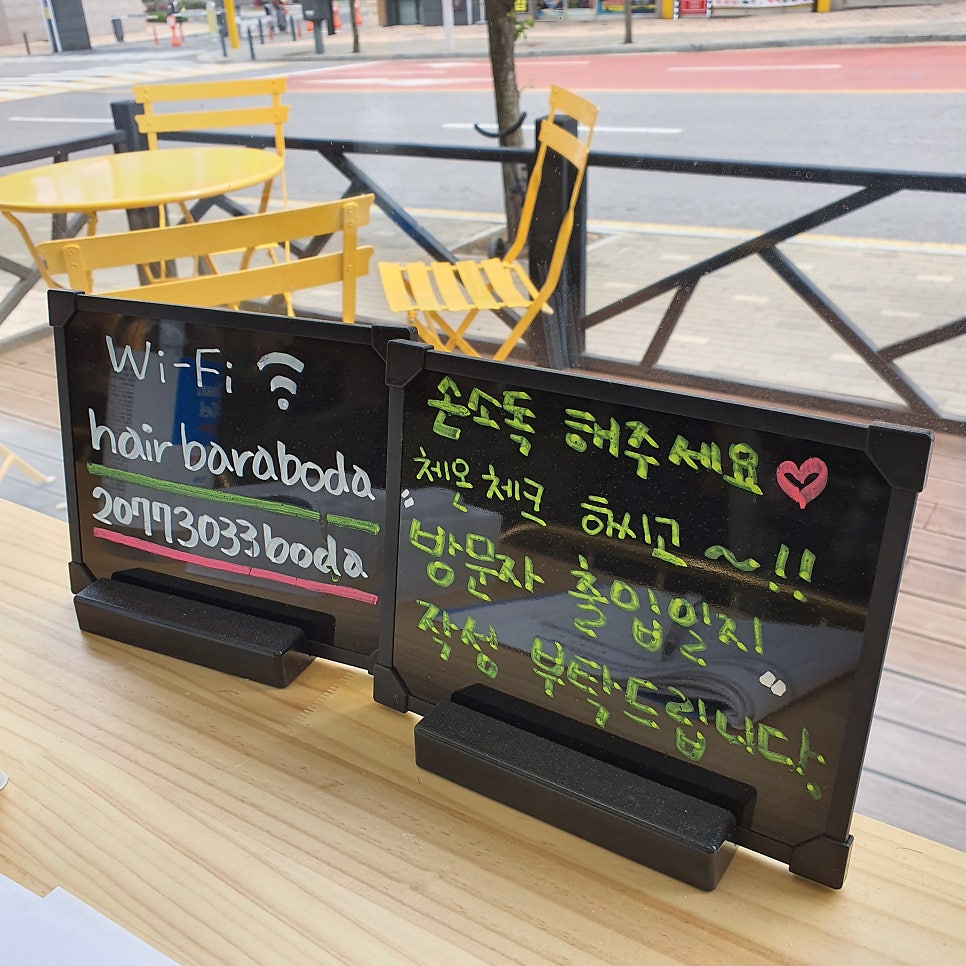 Wi-Fi
hair baraboda
20773033boda
손소독 해주세요
체온체크 하시고 ~!!
"방문자 출입일지"
작성 부탁드립니다.